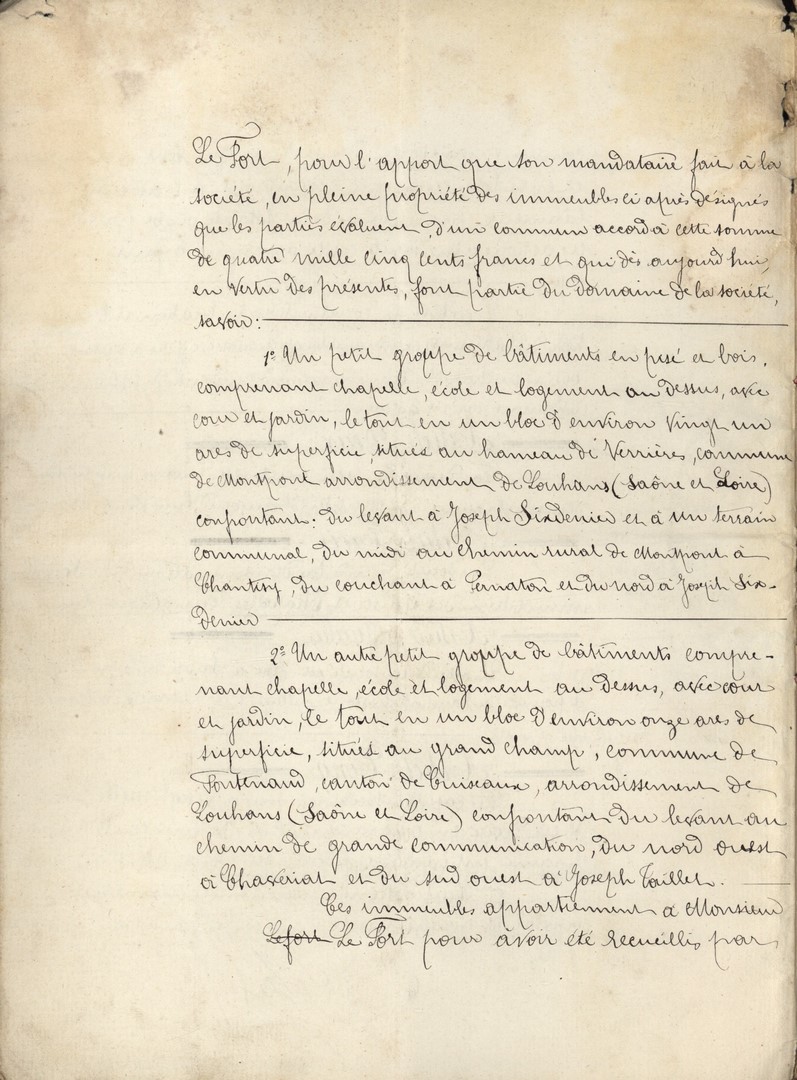 Le Fort, pour l'apport que son mandataire fait à la
société, en pleine propriété des immeubles ci après désignés
que les parties évaluent, d'un commun accord à cette somme
de quatre mille cinq cents francs et qui dès aujourd'hui,
en vertu des présentes, font partie du domaine de la société,
savoir:
1º Un petit groupe de bâtiments en pisé et bois,
comprenant chapelle, école et logement au dessus, avec
cour et jardin, le tout en un bloc d'environ vingt un
ares de superficie, situés au hameau de Verrières, commune
de Montpont arrondissement de Louhans (Saône et Loire)
confrontant: du levant à Joseph Sixdenier et à un terrain
communal, du midi au chemin rural de Montpont à
Chantisy, du couchant à Pernaton et du nord à Joseph Six-
denier
2º Un autre petit groupe de bâtiments compre-
nant chapelle, école et logement au dessus, avec cour
et jardin, le tout en un bloc d'environ onze ares de
superficie, situés au grand champ, commune de
Fontenand, canton de Cuiseaux, arrondissement de
Louhans (Saône et Loire) confrontant du levant au
chemin de grande communication, du nord ouest
à Chaveriat et du sud ouest à Joseph Taillet.
Ces immeubles appartiennent à Monsieur
Lefort Le Fort pour avoir été recueillis par